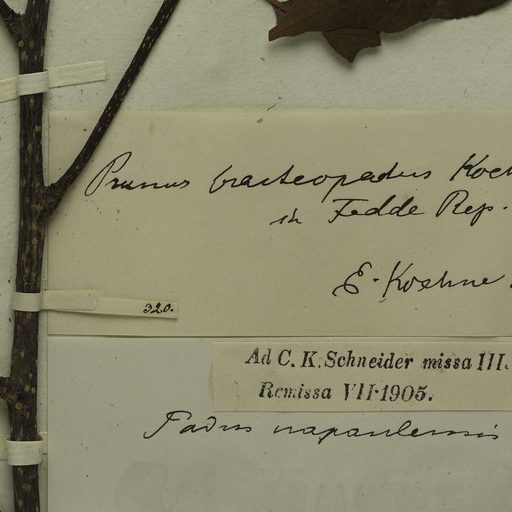 Prunus bracteopadus Koeh
in Fedde Rep.
E. Koehne
320.
Ad C. K. Schneider missa III.
Remissa VII·1905.
Padus napaulensis